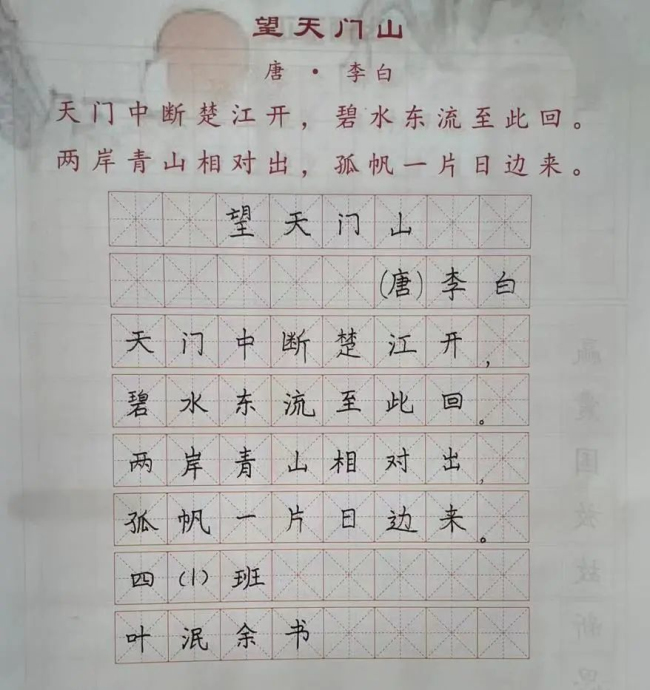 望天门山
唐·李白
天门中断楚江开，碧水东流至此回。
两岸青山相对出，孤帆一片日边来。
望天门山
(唐)李白
天门中断楚江开，
碧水东流至此回。
两岸青山相对出，
孤帆一片日边来。
四(1)班
叶泯余书